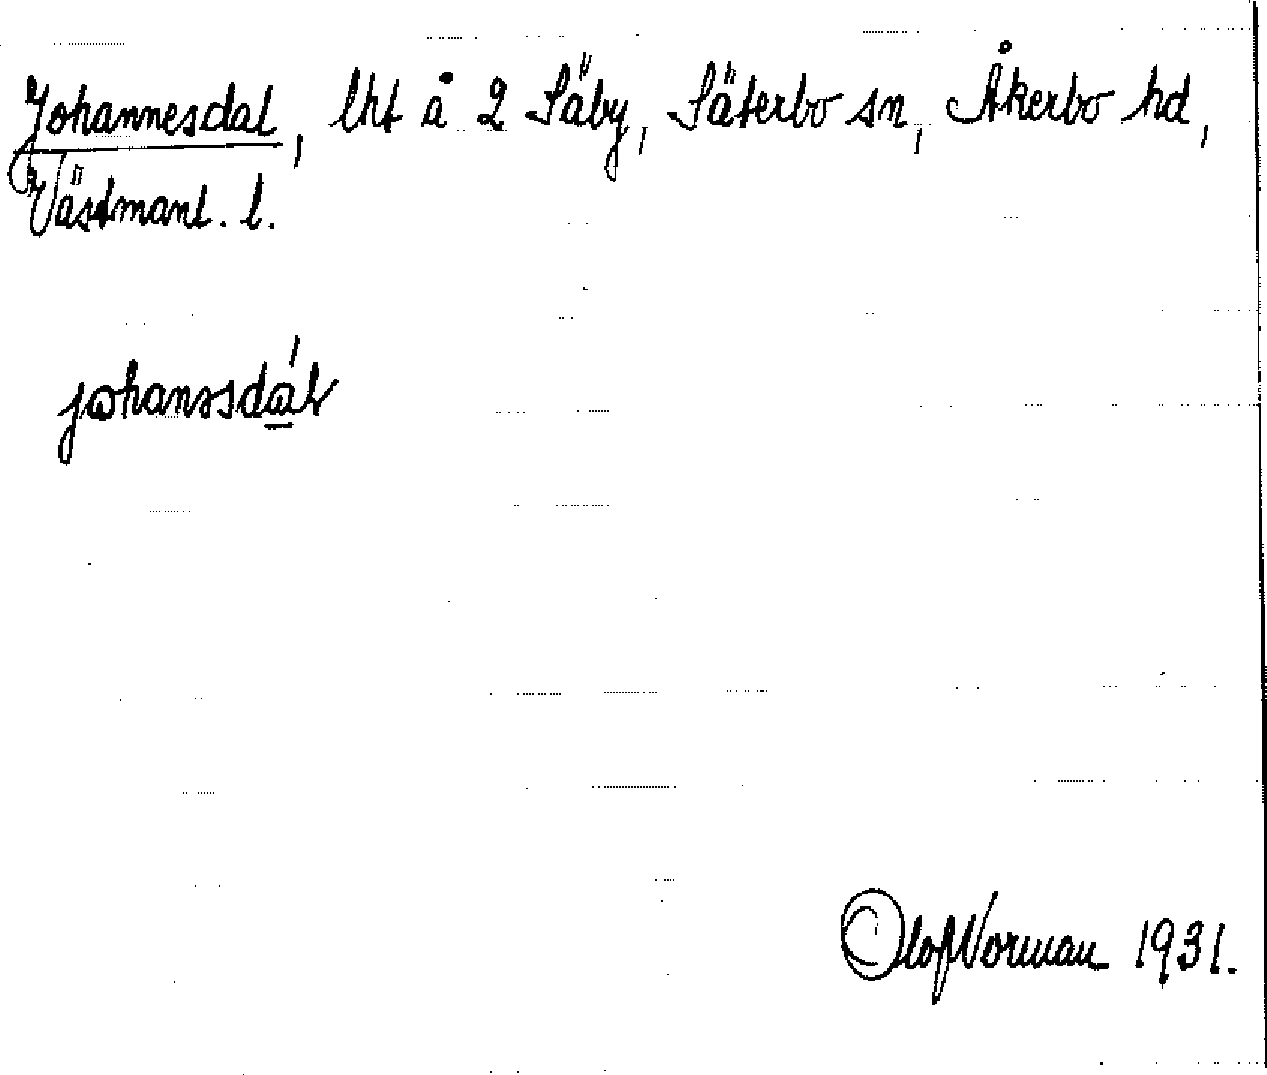 Johannesdal, lht å 2 Säby, Säterbo sn, Åkerbo hd,
Västmanl. l.
johanssdál
Olof Norman 1931.